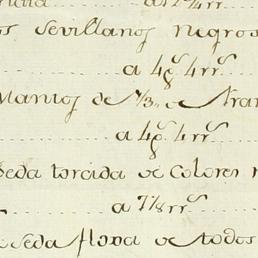 os Sevillanos negros
a 4ps 4rrs
Mantos de 1/3 de Fran
a 4ps 4rrs
Seda torcida de Colores
a 7 1/8 rrs
Seda floxa de todos